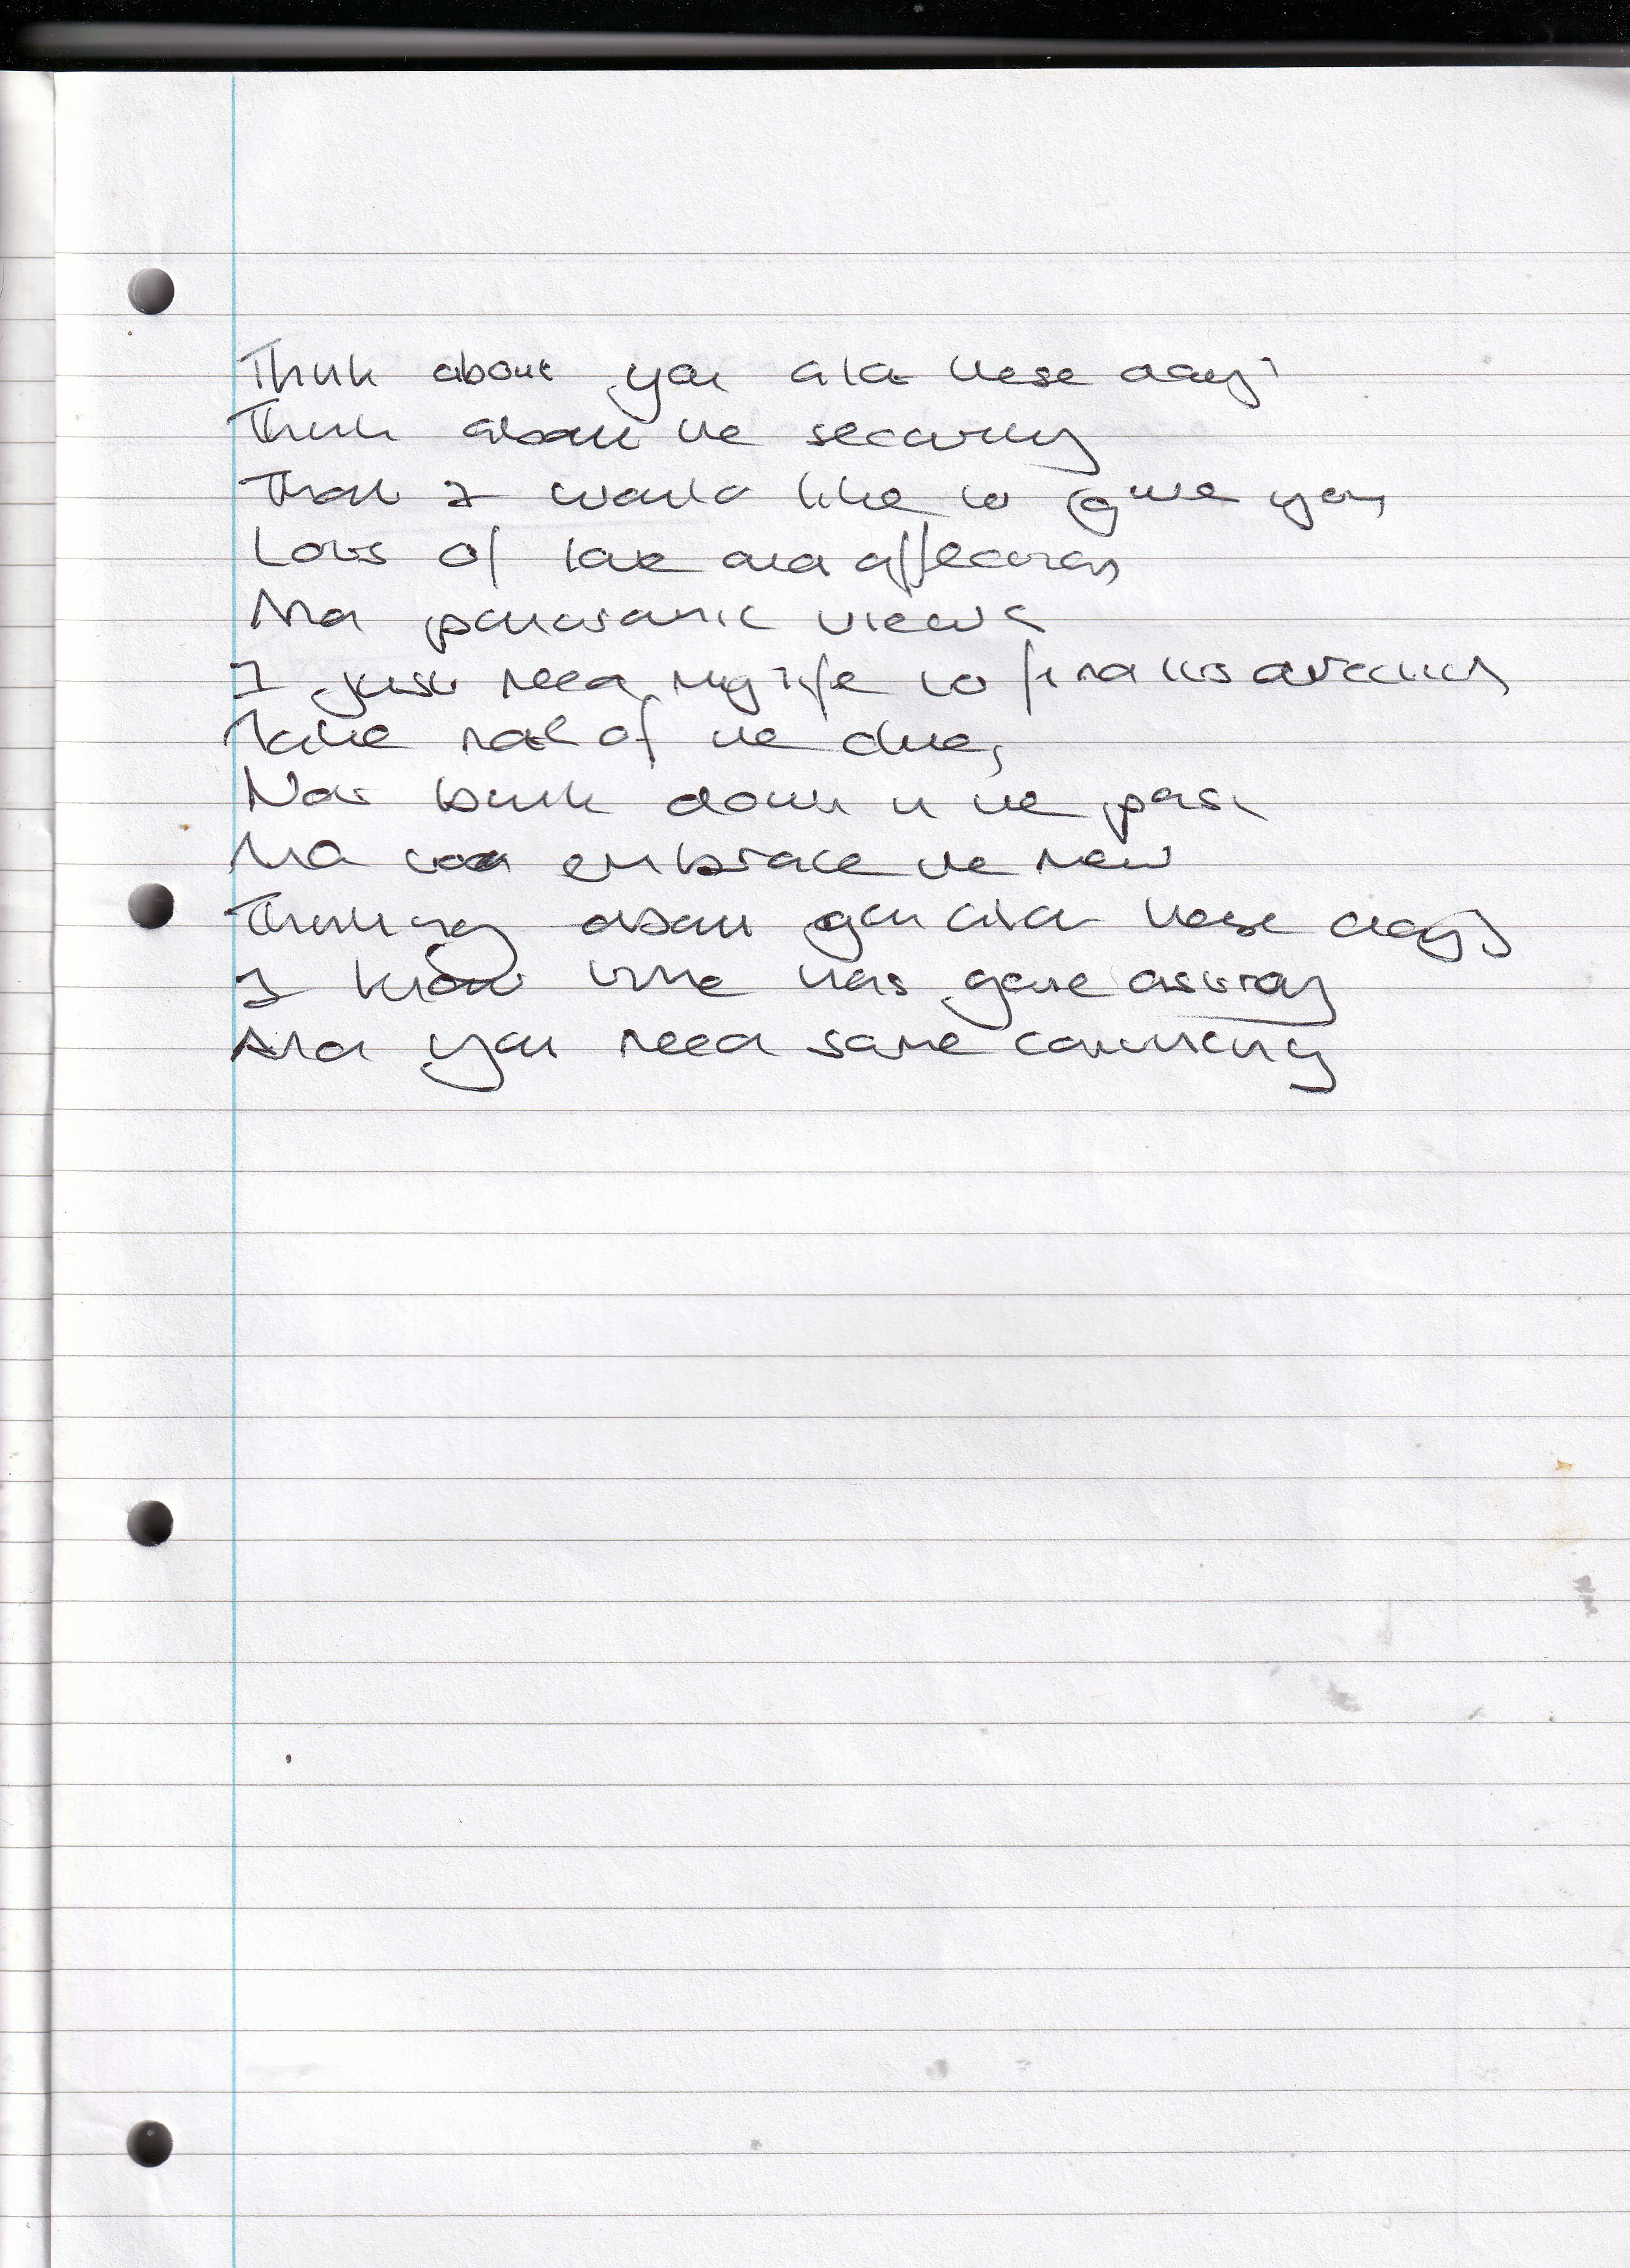 Think about you alot these days
Think about the security
That I would like to give you,
Lots of love and affection,
And panoramic views
I just need my life to find its direction,
Take note of the clue,
Not build down in the past
And embrace the new
Thinking about you alot these days,
I know time has gone astray
And you need some convincing